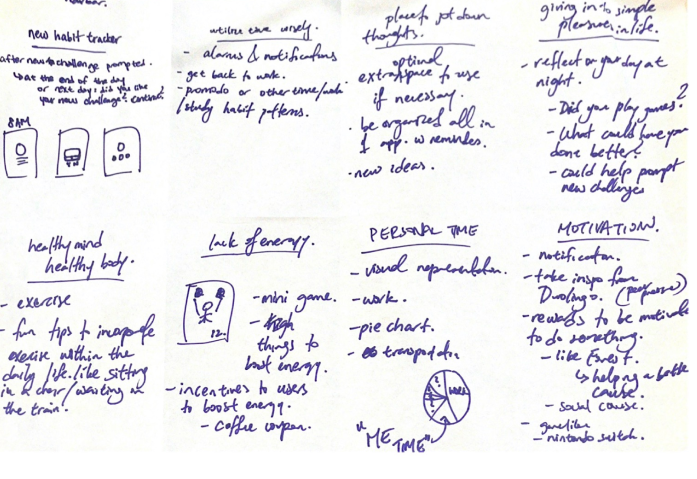 new habit tracker
after new challenge prompted.
↳ at the end of the day
or next day: did you like
your new challenge? continue?
8AM
utilize time wisely.
- alarms & notifications
- get back to work.
- promodo or other time/work
/study habit patterns.
place to jot down
thoughts.
optional
extra space to use
if necessary.
· be organized all in
1 app. w reminders.
· new ideas.
giving in to simple
pleasures in life.
- reflect on your day at
night.
- Did you play games?
- What could have you
done better?
- could help prompt
new challenges
healthy mind
healthy body.
- exercise
- fun tips to incorporate
exercise within the
daily life. like sitting
in a chair/waiting on
the train.
lack of energy.
12..
- mini game.
things to
boost energy.
- incentives to users
to boost energy.
- coffee coupon.
PERSONAL TIME
- visual representation.
- work.
- pie chart.
- transportation
WORK
"ME
TIME"
MOTIVATION.
- notification.
- take inspo from
Duolingo.
- rewards to be motivated
to do something.
- like Forest.
↳ helping a better
cause.
- social cause.
- gamelike
- nintendo switch.